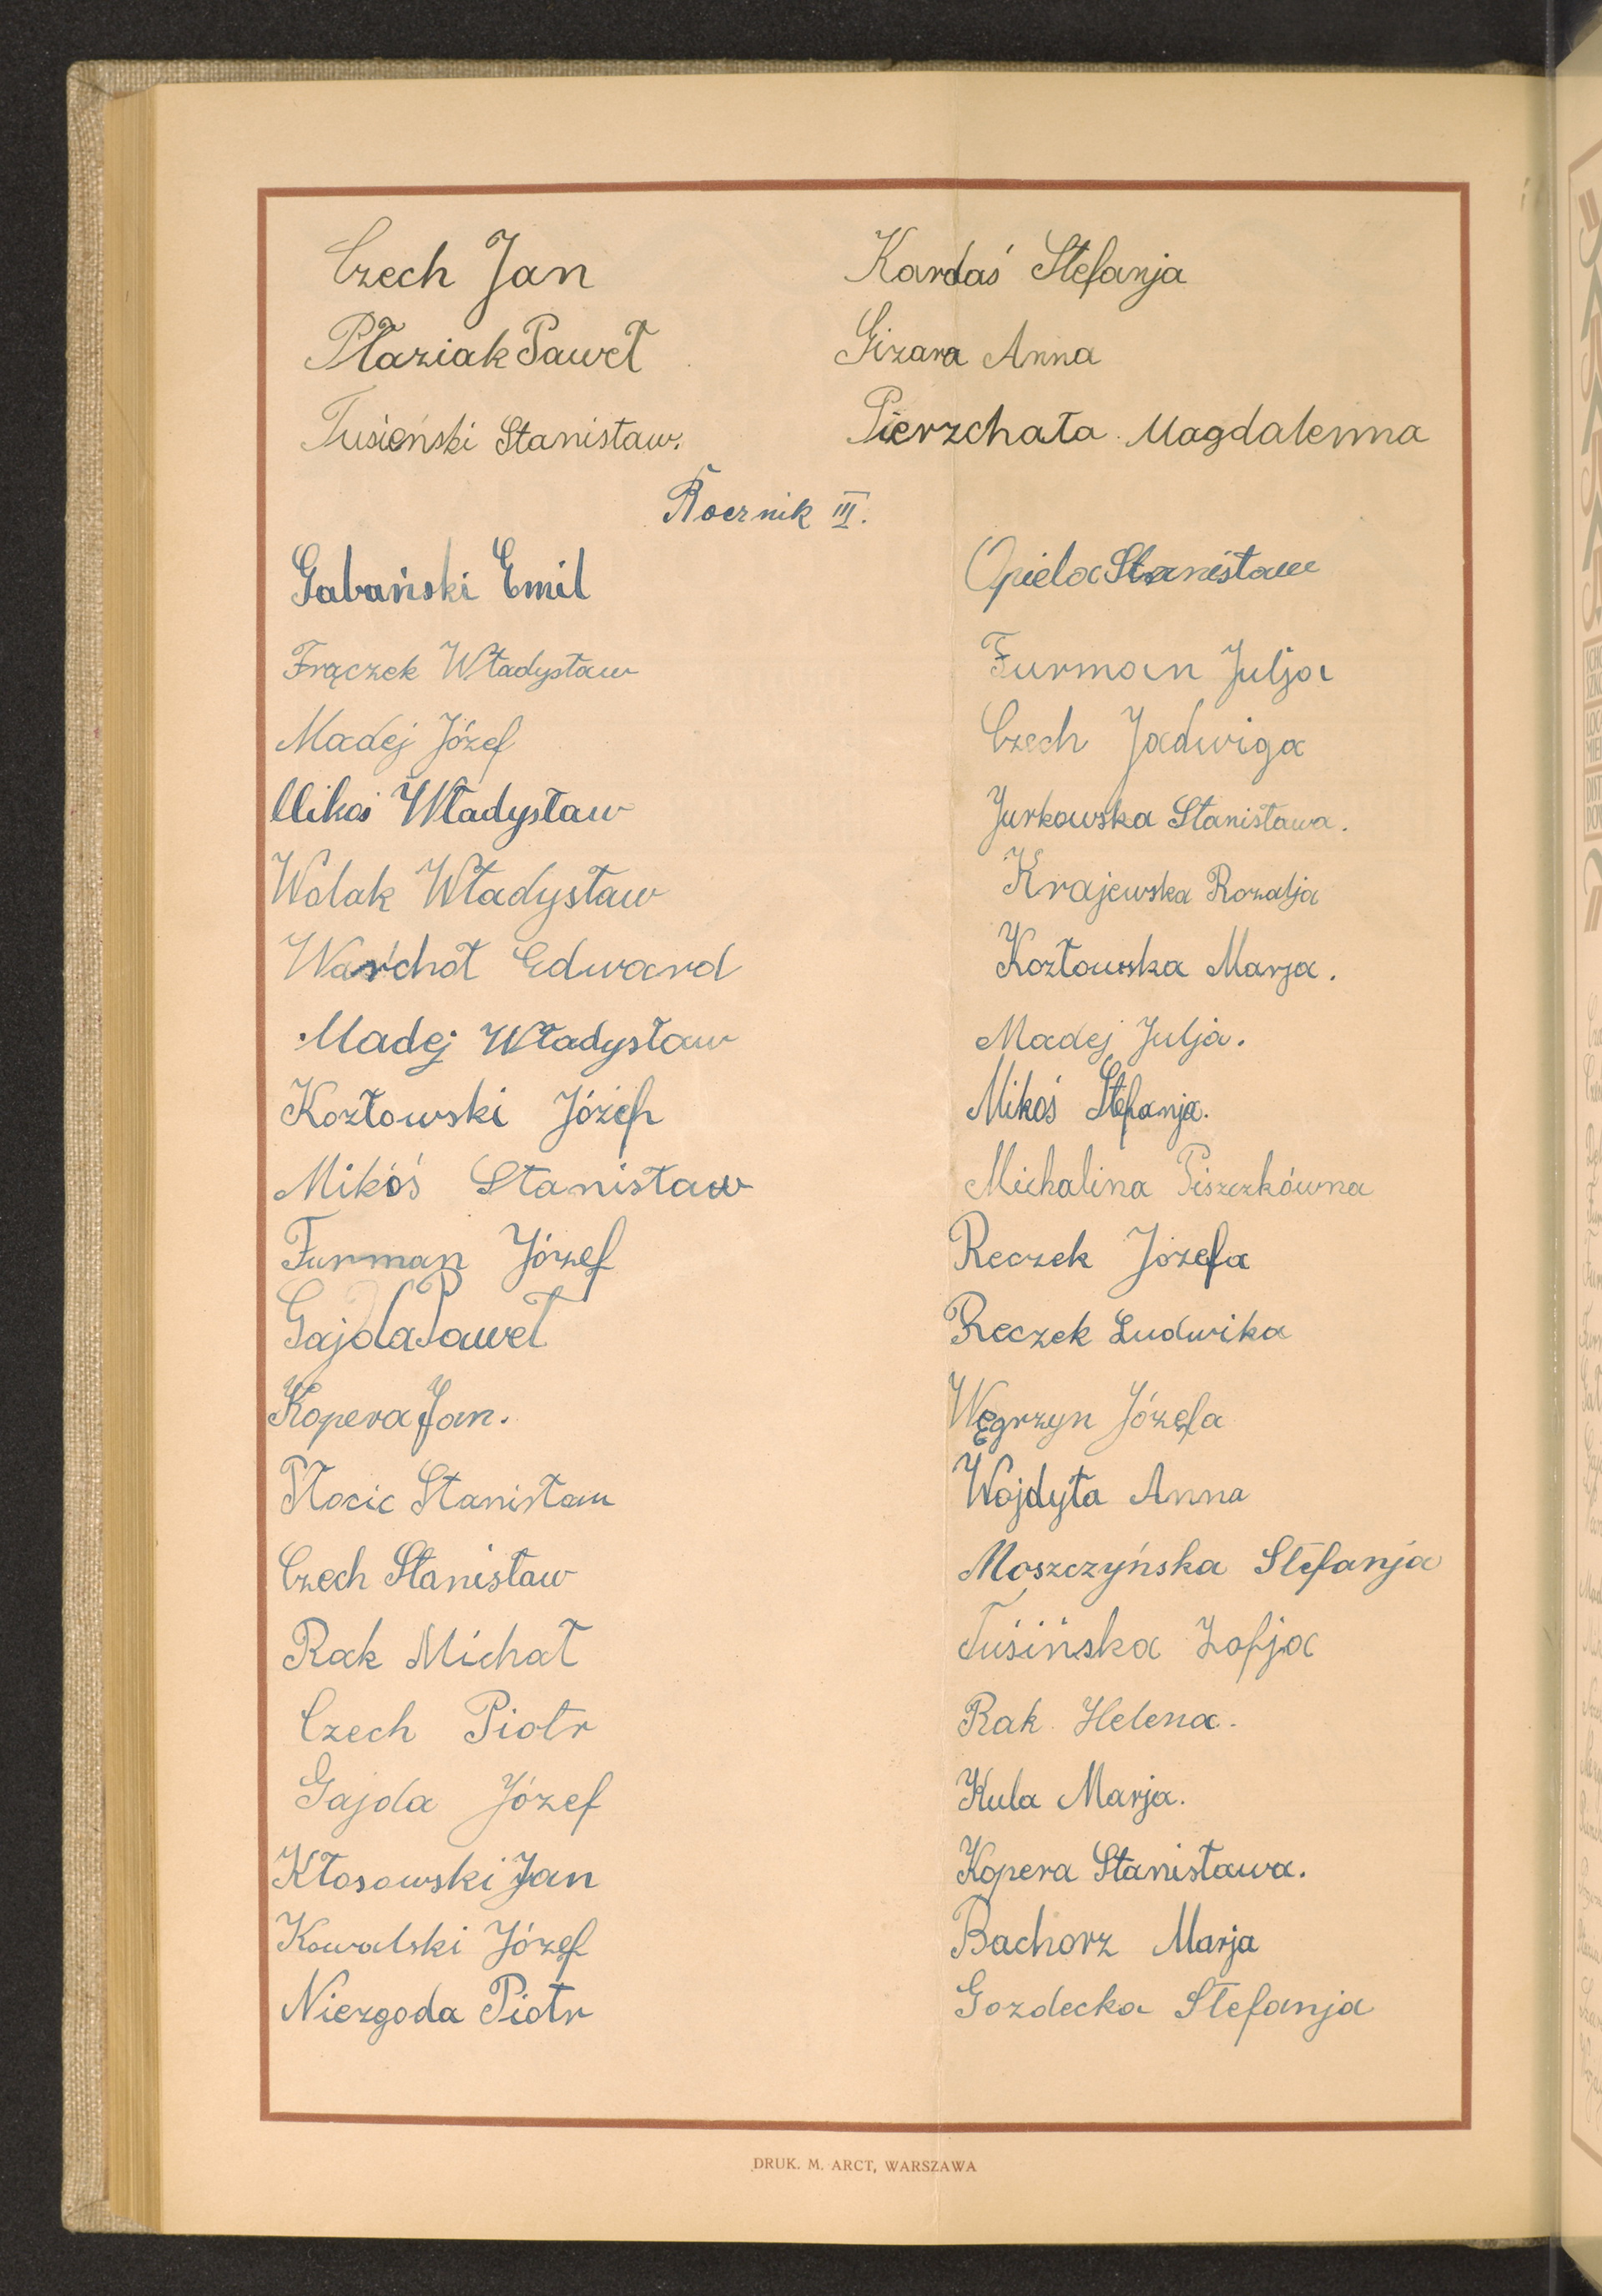 Czech Jan
Kardaś Stefanja
Płaziak Paweł
Gizara Anna
Tusieński Stanisław.
Pierzchała Magdalenna
Rocznik III.
Gabański Emil
Opiela Stanisław
Frączek Władysław
Furman Julja
Madej Józef
Czech Jadwiga
Mikoś Władysław
Jurkowska Stanisława.
Wolak Władysław
Krajewska Rozalja
Warchoł Edward
Kozłowska Marja.
Madej Władysław
Madej Julja.
Kozłowski Józef
Mikoś Stefanja.
Mikóś Stanisław
Michalina Piszczkówna
Furman Józef
Reczek Józefa
Gajda Paweł
Reczek Ludwika
Kopera Jan.
Węgrzyn Józefa
Płocic Stanisław
Wojdyła Anna
Czech Stanisław
Moszczyńska Stefanja
Rak Michał
Tusińska Zofja
Czech Piotr
Rak Helena.
Gajda Józef
Kula Marja.
Kłosowski Jan
Kopera Stanisława.
Kowalski Józef
Bachorz Marja
Niezgoda Piotr
Gozdecka Stefanja
DRUK. M. ARCT, WARSZAWA